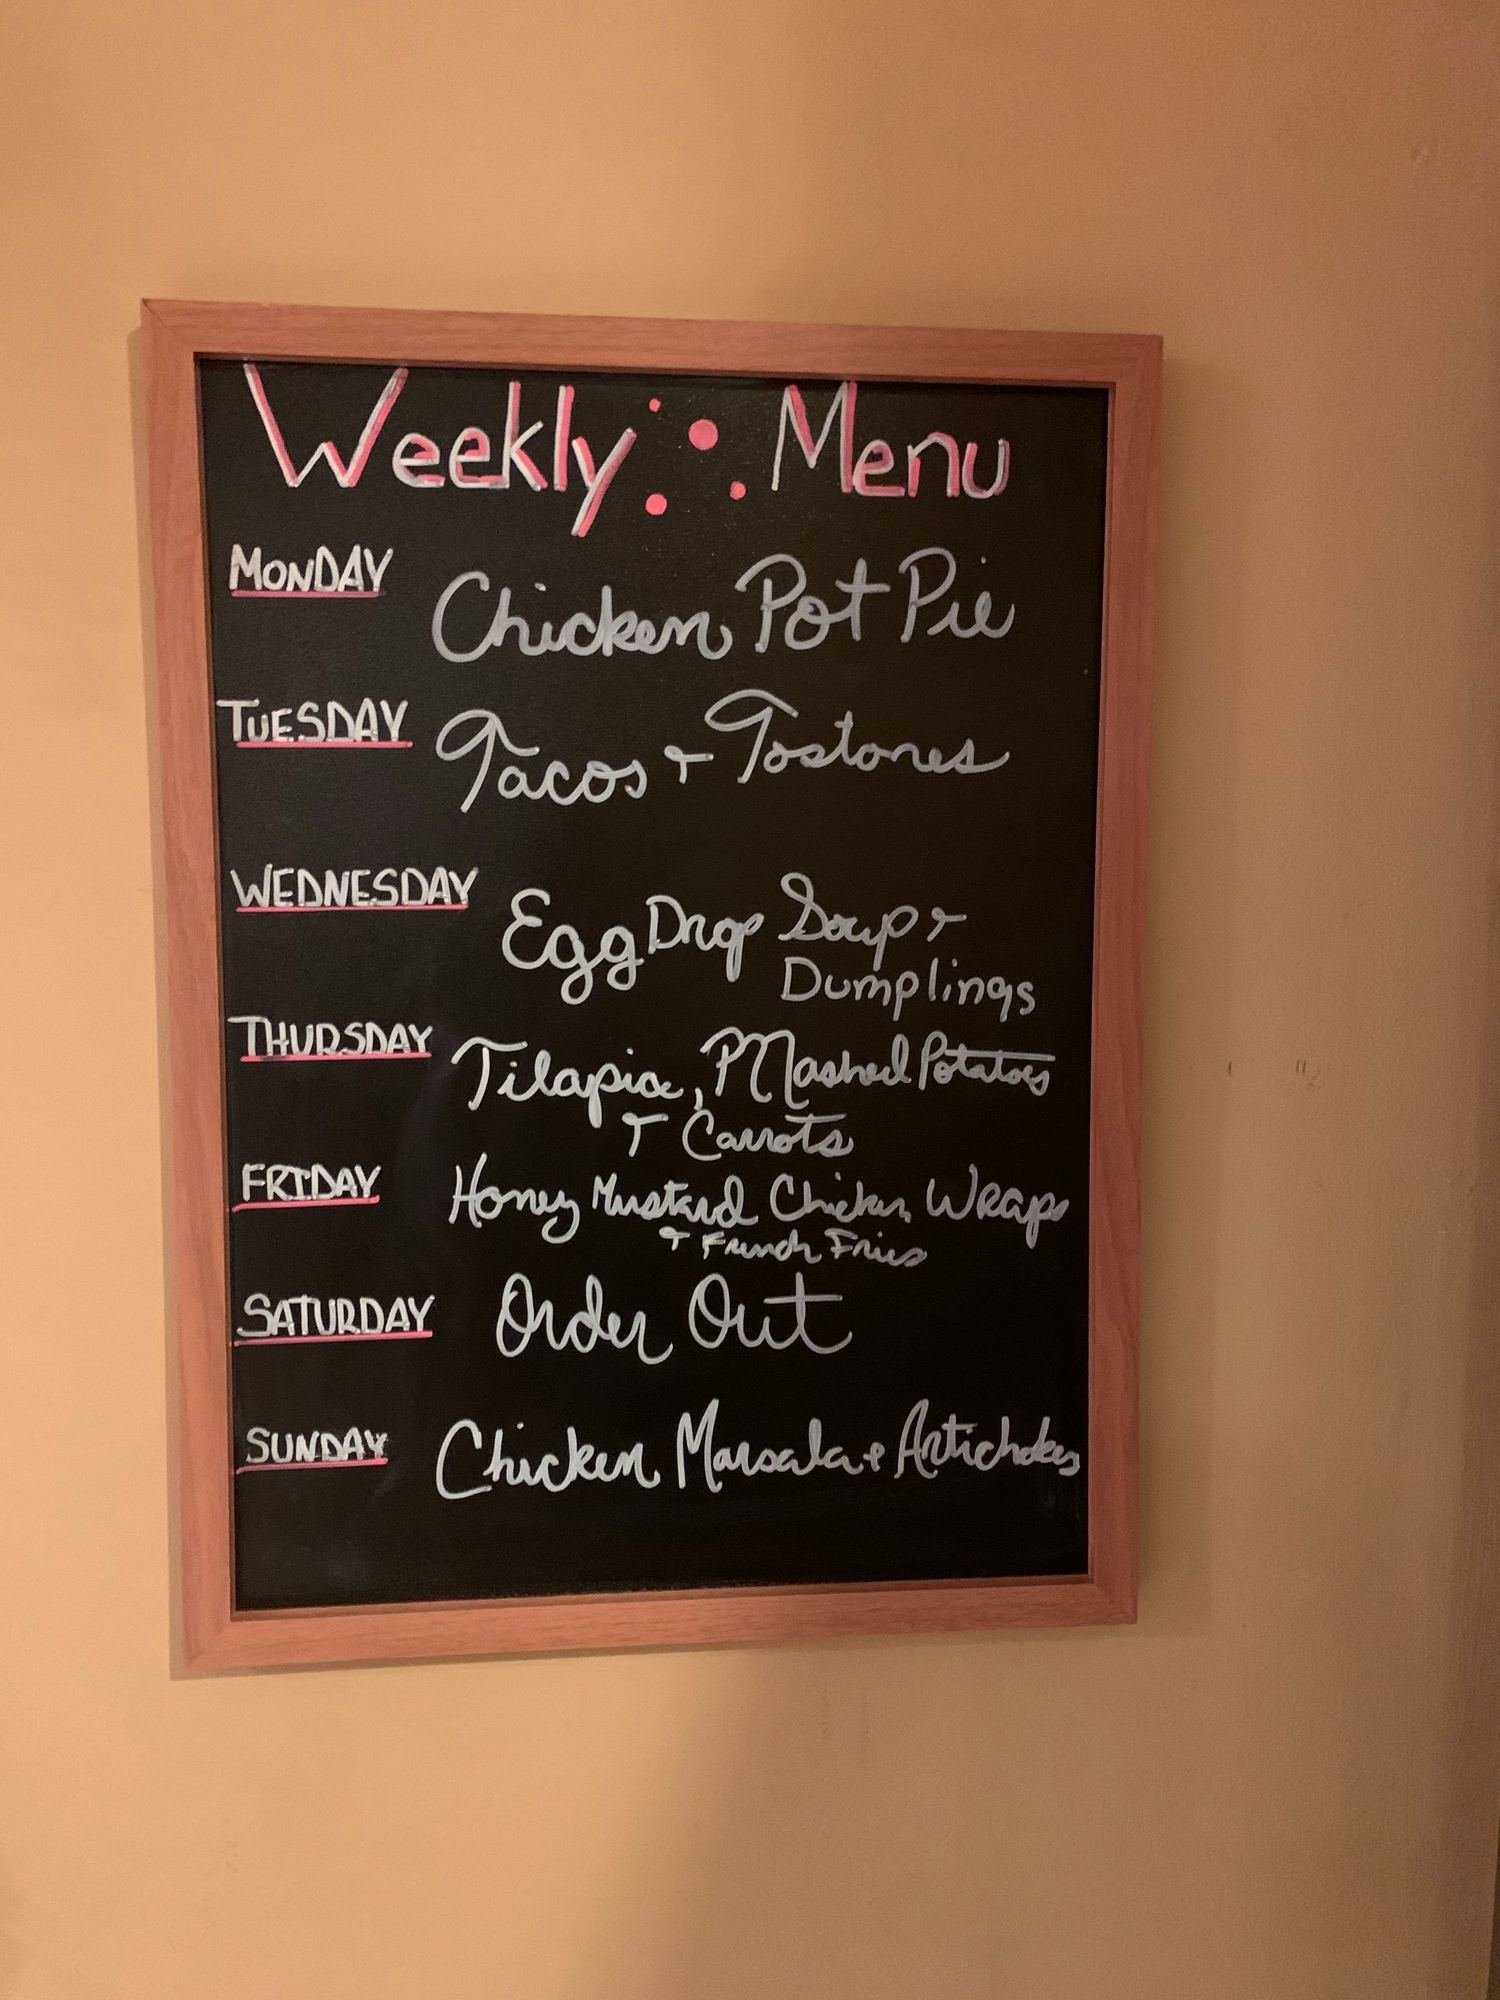 Weekly Menu
MONDAY
Chicken Pot Pie
TUESDAY
Tacos + Tostones
WEDNESDAY
Egg Drop Soup +
Dumplings
THURSDAY
Tilapia, Mashed Potatoes
+ Carrots
FRIDAY
Honey Mustard Chicken Wraps
+ French Fries
SATURDAY
Order Out
SUNDAY
Chicken Marsala + Artichokes